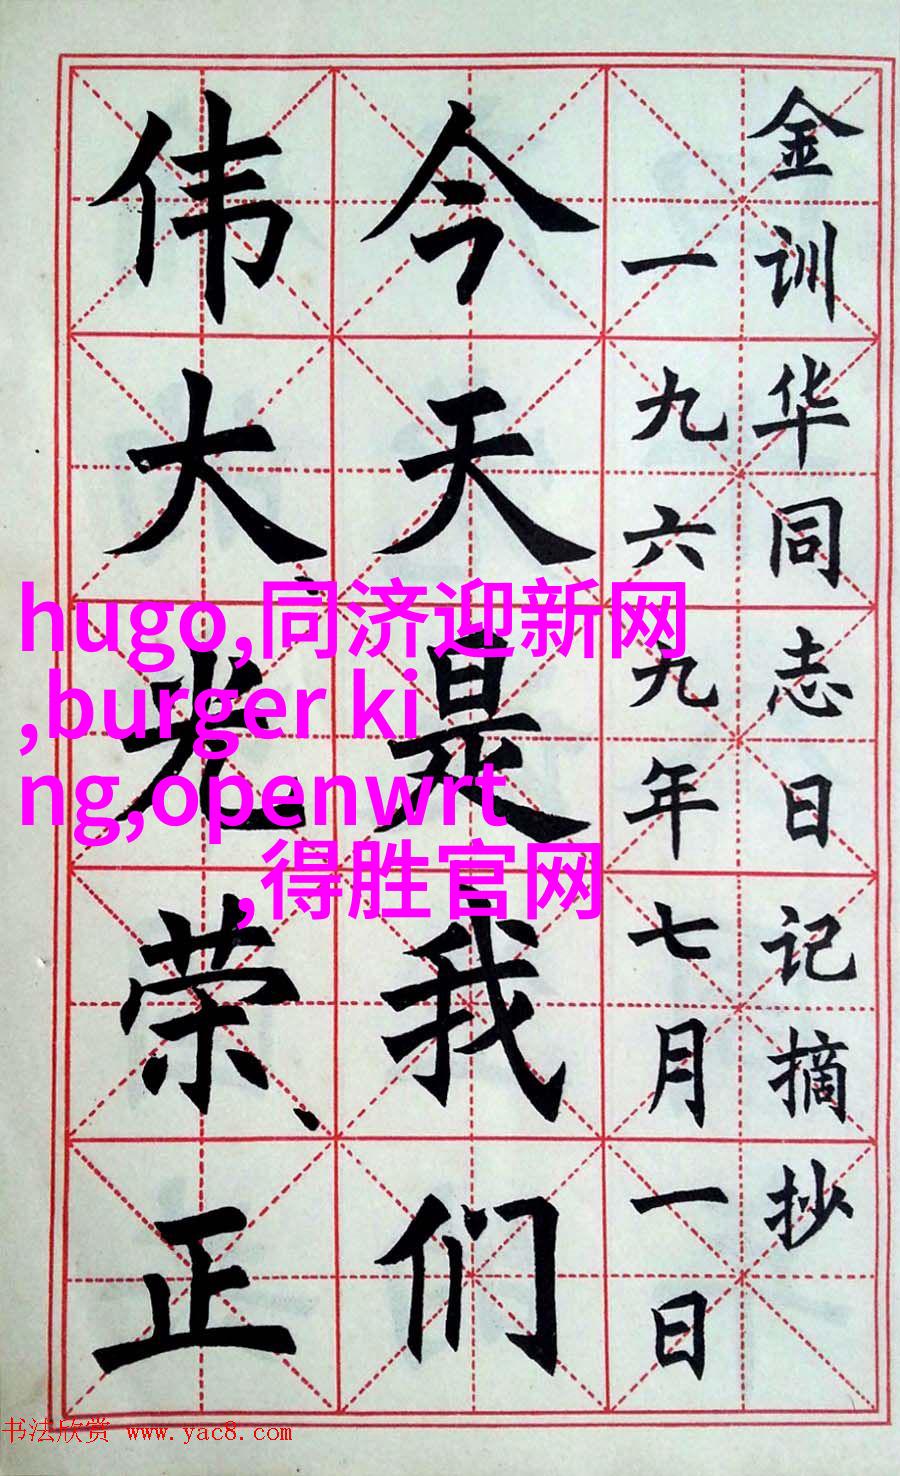 金训华同志日记摘抄
一九六九年七月一日
今天是我们
伟大、光荣、正
hugo,同济迎新网
,burger ki
ng,openwrt
,得胜官网
书法欣赏 www.yac8.com